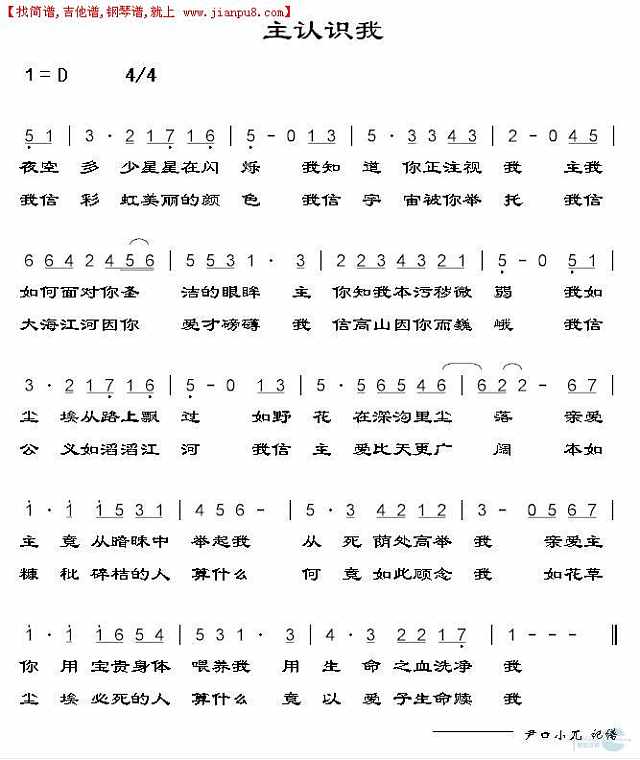 【找简谱,吉他谱,钢琴谱,就上 www.jianpu8.com】
主认识我
1=D 4/4
5 1 | 3 · 2 1 7 1 6 | 5 - 0 1 3 | 5 · 3 3 4 3 | 2 - 0 4 5 |
夜空 多 少星星在闪 烁 我知 道 你正注视 我 主我
我信 彩 虹美丽的颜 色 我信 宇 宙被你举 托 我信
6 6 4 2 4 5 6 | 5 5 3 1 · 3 | 2 2 3 4 3 2 1 | 5 - 0 5 1 |
如何面对你圣 洁的眼眸 主 你知我本污秽微 弱 我如
大海江河因你 爱才磅礴 我 信高山因你而巍 峨 我信
3 · 2 1 7 1 6 | 5 - 0 1 3 | 5 · 5 6 5 4 6 | 6 2 2 - 6 7 |
尘 埃从路上飘 过 如野 花 在深沟里尘 落 亲爱
公 义如滔滔江 河 我信 主 爱比天更广 阔 本如
1 · 1 1 5 3 1 | 4 5 6 - | 5 · 3 4 2 1 2 | 3 - 0 5 6 7 |
主 竟 从暗昧中 举起我 从 死 荫处高举 我 亲爱主
糠 秕 碎秸的人 算什么 何 竟 如此顾念 我 如花草
1 · 1 1 6 5 4 | 5 5 3 1 · 3 | 4 · 3 2 2 1 7 | 1 - - - ‖
你 用 宝贵身体 喂养我 用 生 命 之血洗净 我
尘 埃 必死的人 算什么 竟 以 爱 子生命赎 我
尹口小兀 记谱